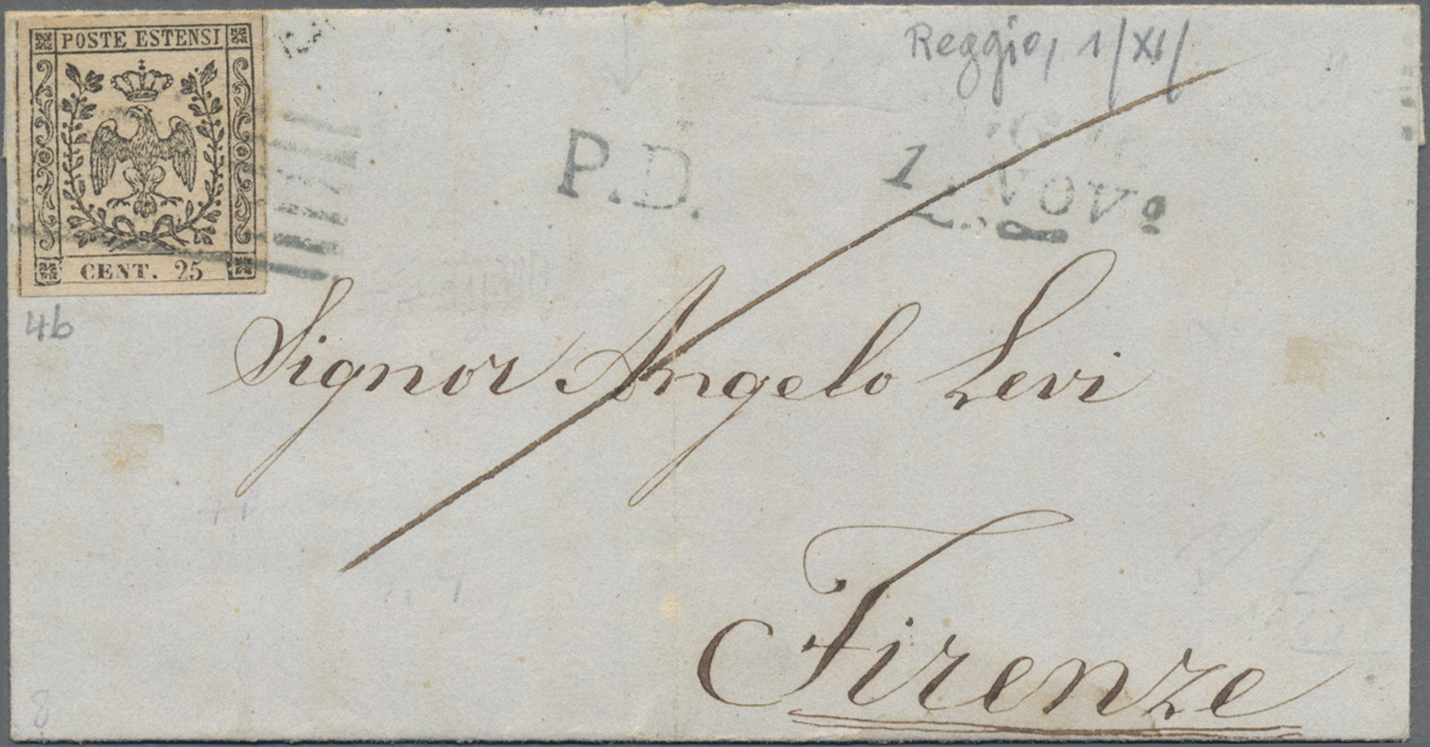 POSTE ESTENSI
CENT. 25
Reggio, 1/XI/
P.D.
1. NOV:
4b
Signor Angelo Levi
Firenze
8